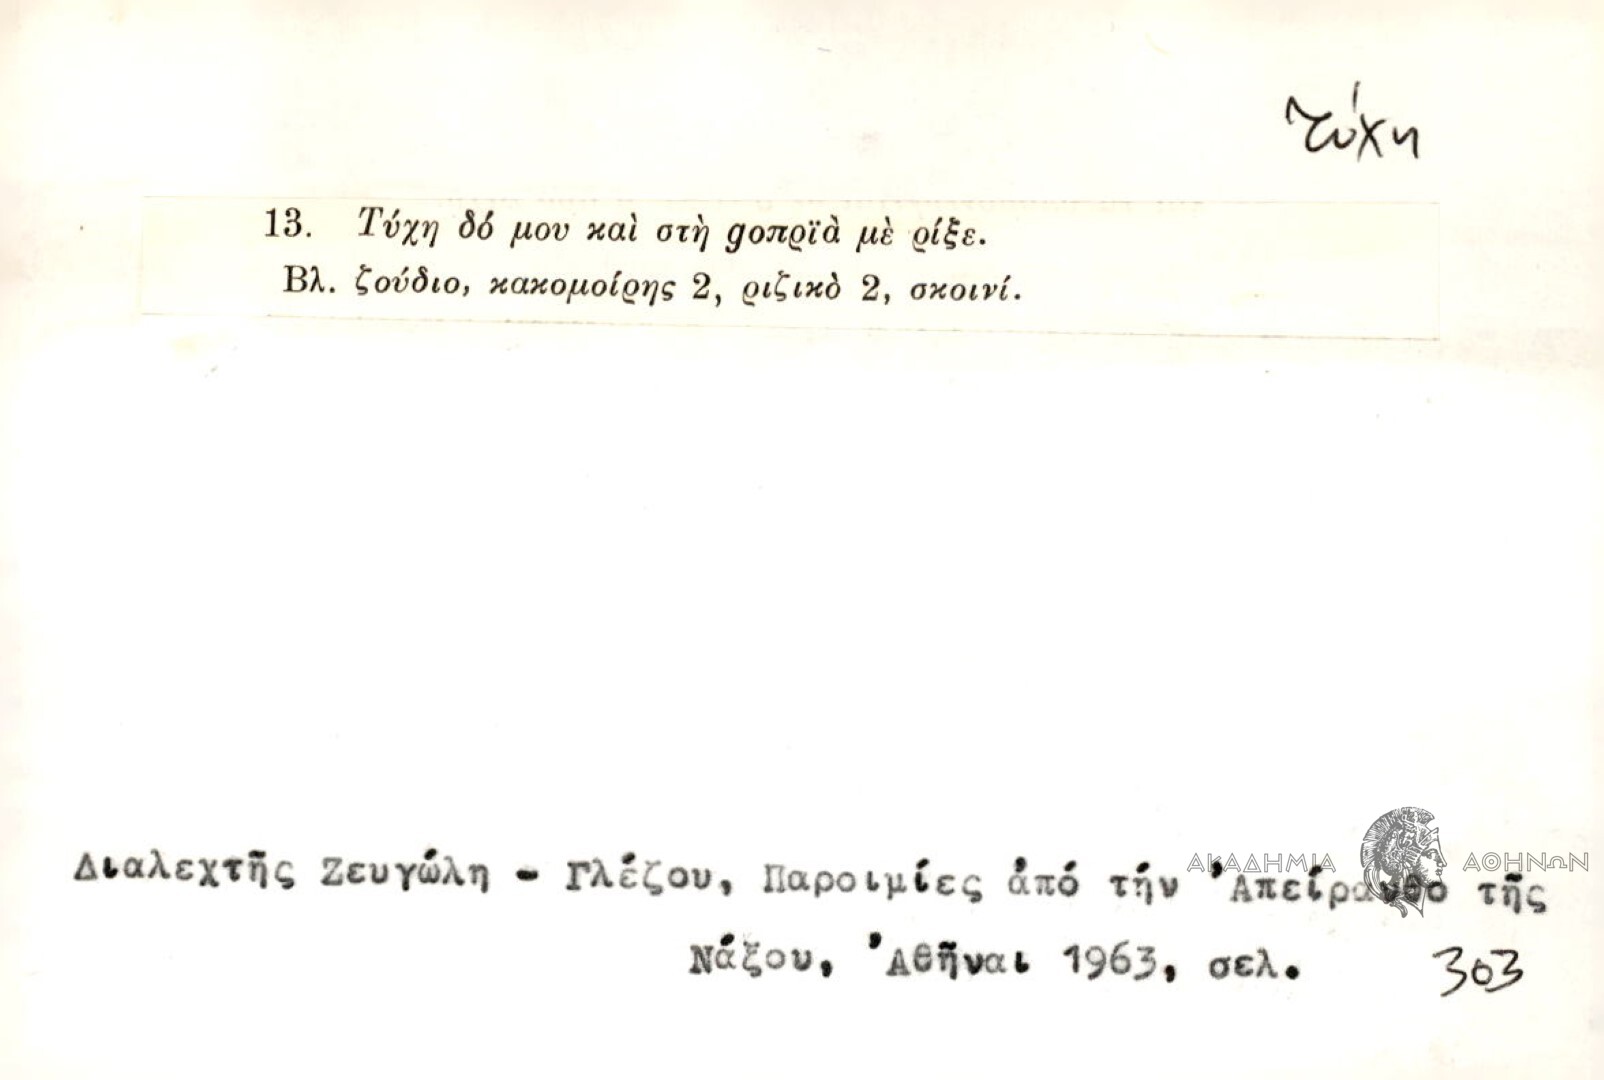 τύχη
13. Τύχη δό μου καὶ στὴ gοπρϊὰ μὲ ρίξε.
Βλ. ζούδιο, κακομοίρης 2, ριζικὸ 2, σκοινί.
ΑΚΑΔΗΜΙΑ ΑΘΗΝΩΝ
Διαλεχτῆς Ζευγώλη - Γλέζου, Παροιμίες ἀπό τήν Ἀπείρανθο τῆς
Νάξου, Ἀθῆναι 1963, σελ. 303